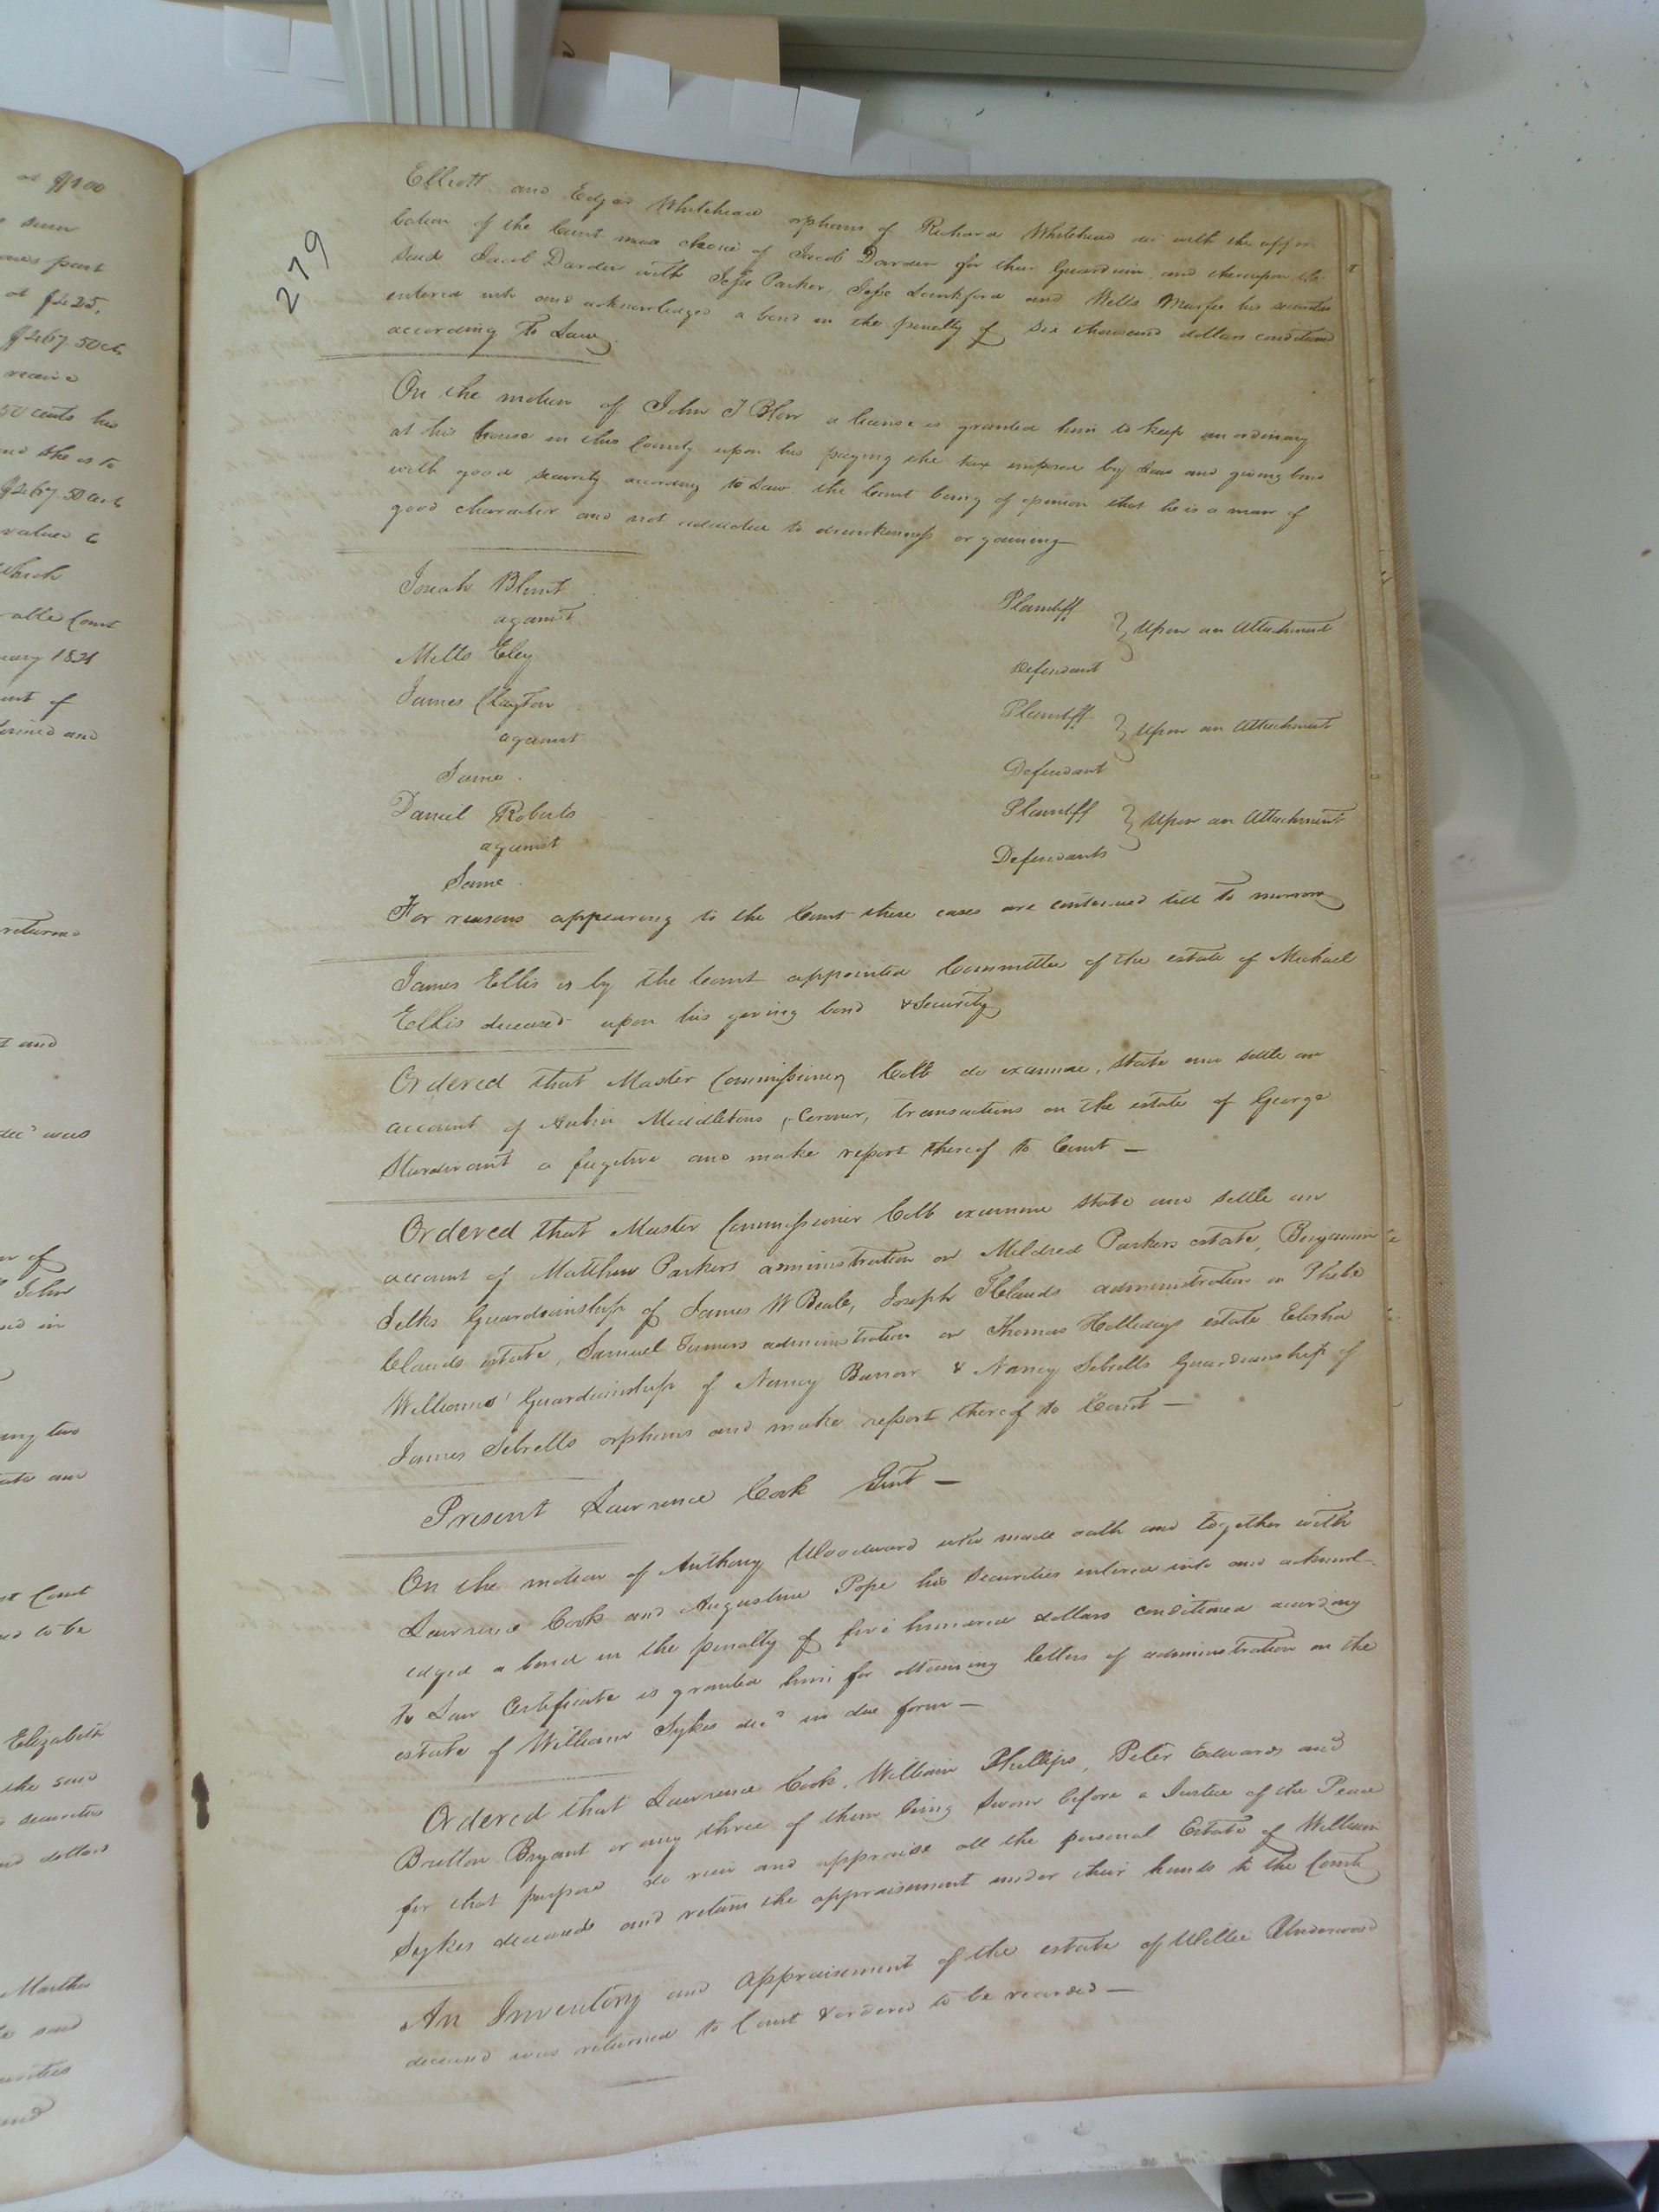 279
Elliott and Edgar Whitehead orphans of Richard Whitehead dec^d with the appro-
bation of the Court made choice of Jacob Darden for their Guardian, and thereupon the
said Jacob Darden with Jesse Parker, Jesse Lankford and Wells Murfee his securities
entered into and acknowledged a bond in the penalty of Six thousand dollars conditioned
according to Law.
On the motion of John T Blow a license is granted him to keep an ordinary
at his house in this County upon his paying the tax imposed by Law and giving bond
with good security according to Law the Court being of opinion that he is a man of
good character and not addicted to drunkenness or gaming —
Josiah Blunt Plaintiff
against } Upon an Attachment
Mills Eley Defendant
James Clayton Plaintiff
against } Upon an Attachment
Same. Defendant
Daniel Roberts Plaintiff
against } Upon an Attachment
Same. Defendants
For reasons appearing to the Court these cases are continued till to morrow
James Ellis is by the Court appointed Committee of the estate of Michael
Ellis deceased upon his giving bond & Security
Ordered that Master Commissioner Cobb do examine, state and settle an
account of Middletons, Coroner, transactions on the estate of George
Sturdivant a fugitive and make report thereof to Court —
Ordered that Master Commissioner Cobb examine state and settle an
account of Matthew Parkers administration on Mildred Parkers estate, Benjamin
Guardianship of James W Beale, Joseph T Clauds administration on Phebe
Clauds estate, Samuel Turners administration on Thomas Holledays estate Elisha
Williams' Guardianship of Nancy Barrow & Nancy Sebrells Guardianship of
James Sebrells orphans and make report thereof to Court —
Present Lawrence Cook Gent —
On the motion of Anthony Woodward who made oath and together with
Lawrence Cook and Augustine Pope his Securities entered into and acknowl-
edged a bond in the penalty of five hundred dollars conditioned according
to Law Certificate is granted him for obtaining letters of administration on the
estate of William Sykes dec^d in due form —
Ordered that Lawrence Cook, William Phillips, Peter Edwards and
Britton Bryant or any three of them being Sworn before a Justice of the Peace
for that purpose do view and appraise all the personal Estate of William
Sykes deceased and return the appraisement under their hands to the Court
An Inventory and appraisement of the estate of Willie Underwood
deceased was returned to Court & ordered to be recorded —